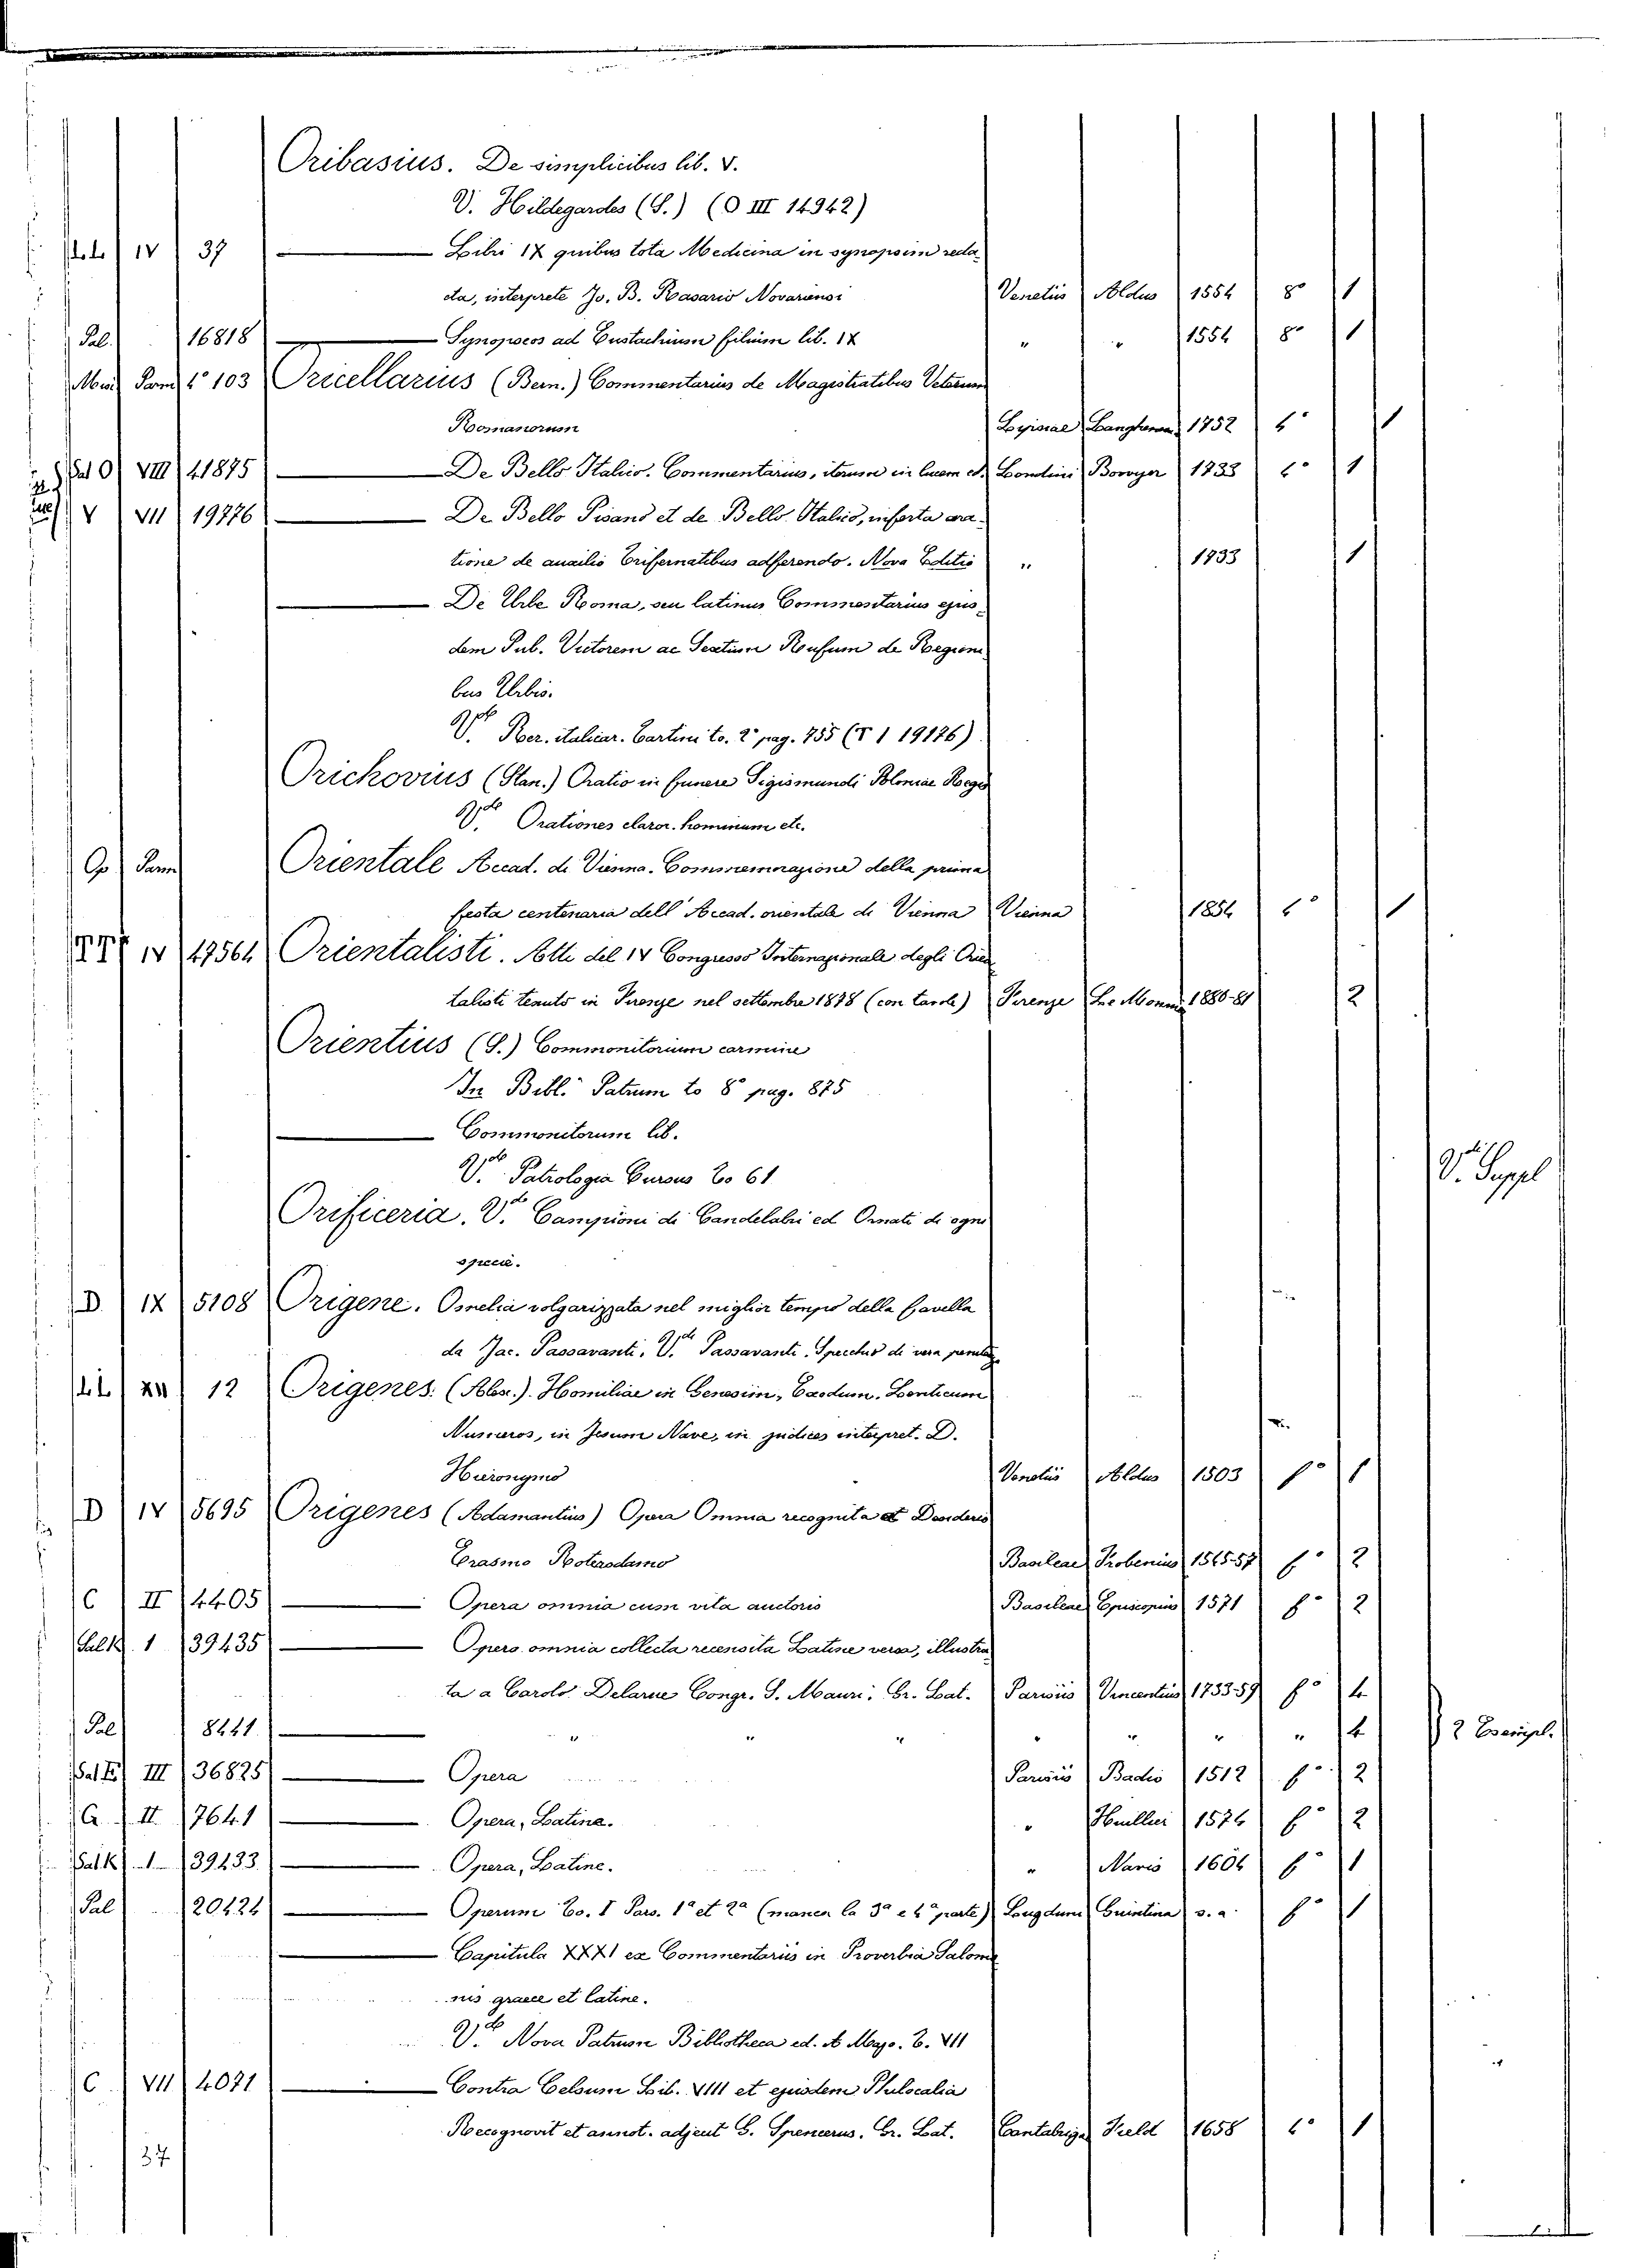 Oribasius. De simplicibus lib. V.
V. Hildegardes (S.) (O III 14942)
IV 37 Libri IX quibus tota Medicina in synopsim reda
cta, interprete Jo. B. Rasario Novariensi Venetiis Aldus 1554 8° 1
Pal. 16818 Synopseos ad Eustachium filium lib. IX " " 1554 8° 1
103 Oricellarius (Bern.) Commentarius de Magistratibus Veterum
Romanorum 1752 4° 1
VIII 41875 De Bello Italico. Commentarius, iterum in lucem ed. Londini Bowyer 1733 4° 1
V VII 19776 De Bello Pisano et de Bello Italico, inserta ora
tione de auxilio Trifernatibus adferendo. Nova Editio " 1733 1
De Urbe Roma, seu latinus Commentarius ejus
dem Pub. Victorem ac Sextum Rufum de Regioni
bus Urbis.
V. Rer. italicar. Tartini to. 2° pag. 755 (T 1 19176)
Orichovius (Stan.) Oratio in funere Sigismundi Poloniae Regis
V. Orationes claror. hominum etc.
Orientale Accad. di Vienna. Commemorazione della prima
festa centenaria dell' Accad. orientale di Vienna Vienna 1854 4° 1
IV 47564 Orientalisti. Atti del IV Congresso Internazionale degli Orien
talisti tenuto in Firenze nel settembre 1878 (con tavole) Firenze Le Monnier 1880-81 2
Orientius (S.) Commonitorium carmine
In Bibl. Patrum to 8° pag. 875
Commonitorum lib.
V. Patrologia Cursus To 61 V. Suppl
Orificeria. V. Campioni di Candelabri ed Ornati di ogni
specie.
D. IX 5108 Origene. Omelia volgarizzata nel miglior tempo della favella
da Jac. Passavanti. V. Passavanti. Specchio di vera penitenza
XII 12 Origenes. (Alex.) Homiliae in Genesim, Exodum, Leviticum
Numeros, in Jesum Nave, in judices interpret. D.
Hieronymo Venetiis Aldus 1503 f° 1
D IV 5695 Origenes (Adamantius) Opera Omnia recognita et Desiderio
Erasmo Roterodamo Basileae Frobenius f° 2
C II 4405 Opera omnia cum vita auctoris Basileae Episcopius 1571 f° 2
Sal K. 1 39435 Opera omnia collecta recensita Latine versa, illustra
ta a Carolo Delarue Congr. S. Mauri; Gr. Lat. Parisiis Vincentius 1733-59 f° 4
Pal 8441 " " " " " " " 4 2 Esempl.
Sal E. III 36825 Opera Parisiis Badio 1512 f° 2
G II. 7641 Opera, Latine. " 1574 f° 2
Sal K 1 39433 Opera, Latine. " 1604 f° 1
Pal 20424 Operum To. I Pars. 1ª et 2ª (manca la 3ª e 4ª parte) Lugduni s. a. f° 1
Capitula XXXI ex Commentariis in Proverbia Salomo
nis graece et latine.
V. Nova Patrum Bibliotheca ed. A Majo. T. VII
C VII 4071 Contra Celsum Lib. VIII et ejusdem Philocalia
Recognovit et annot. adjecit G. Spencerus. Gr. Lat. Cantabrigiae Field 1658 4° 1
37